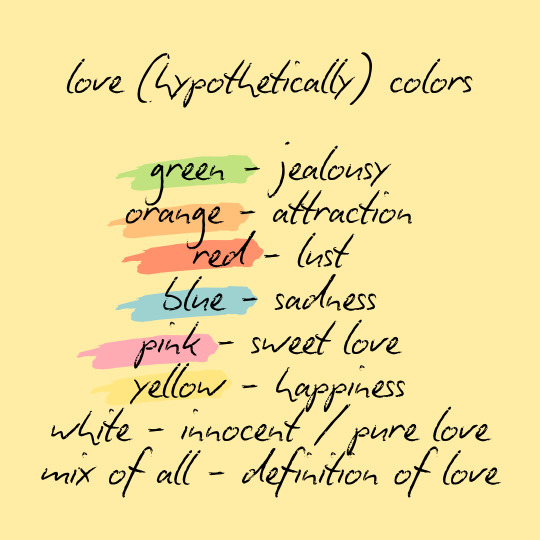 love (hypothetically) colors
green - jealousy
orange - attraction
red - lust
blue - sadness
pink - sweet love
yellow - happiness
white - innocent / pure love
mix of all - definition of love